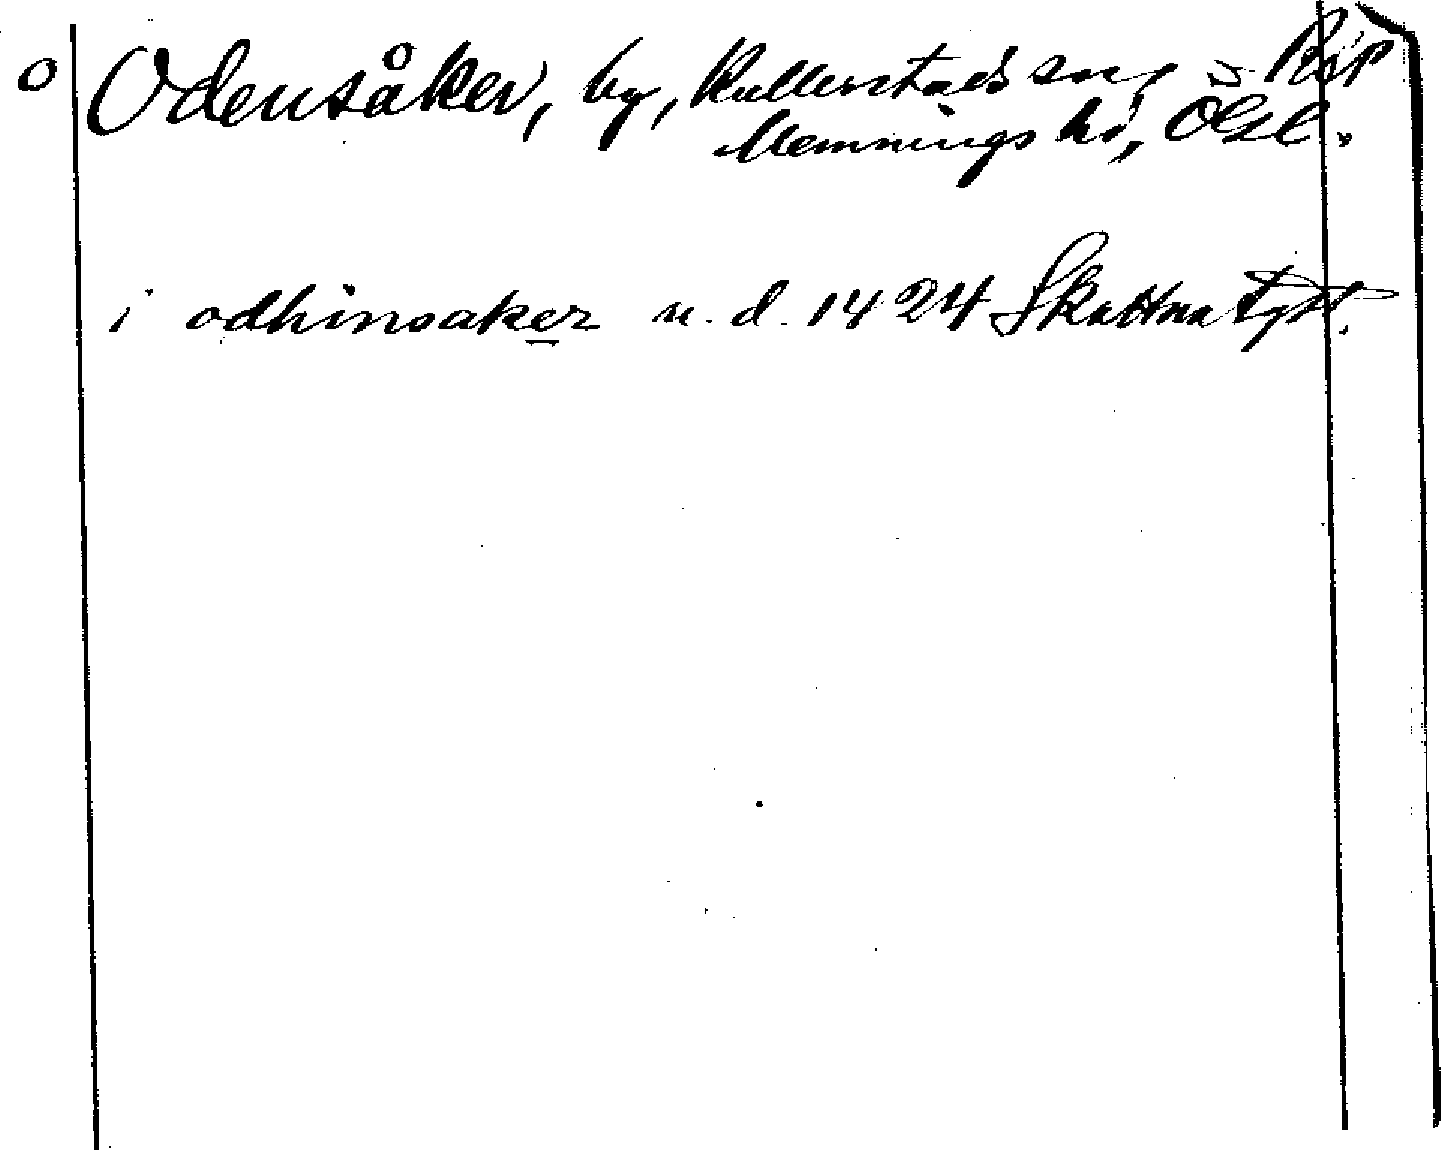 o Odensåker, by, Kullerstads sn,
Memmings hd, Ögtl.
i odhinsaker u. d. 1424 Skattna